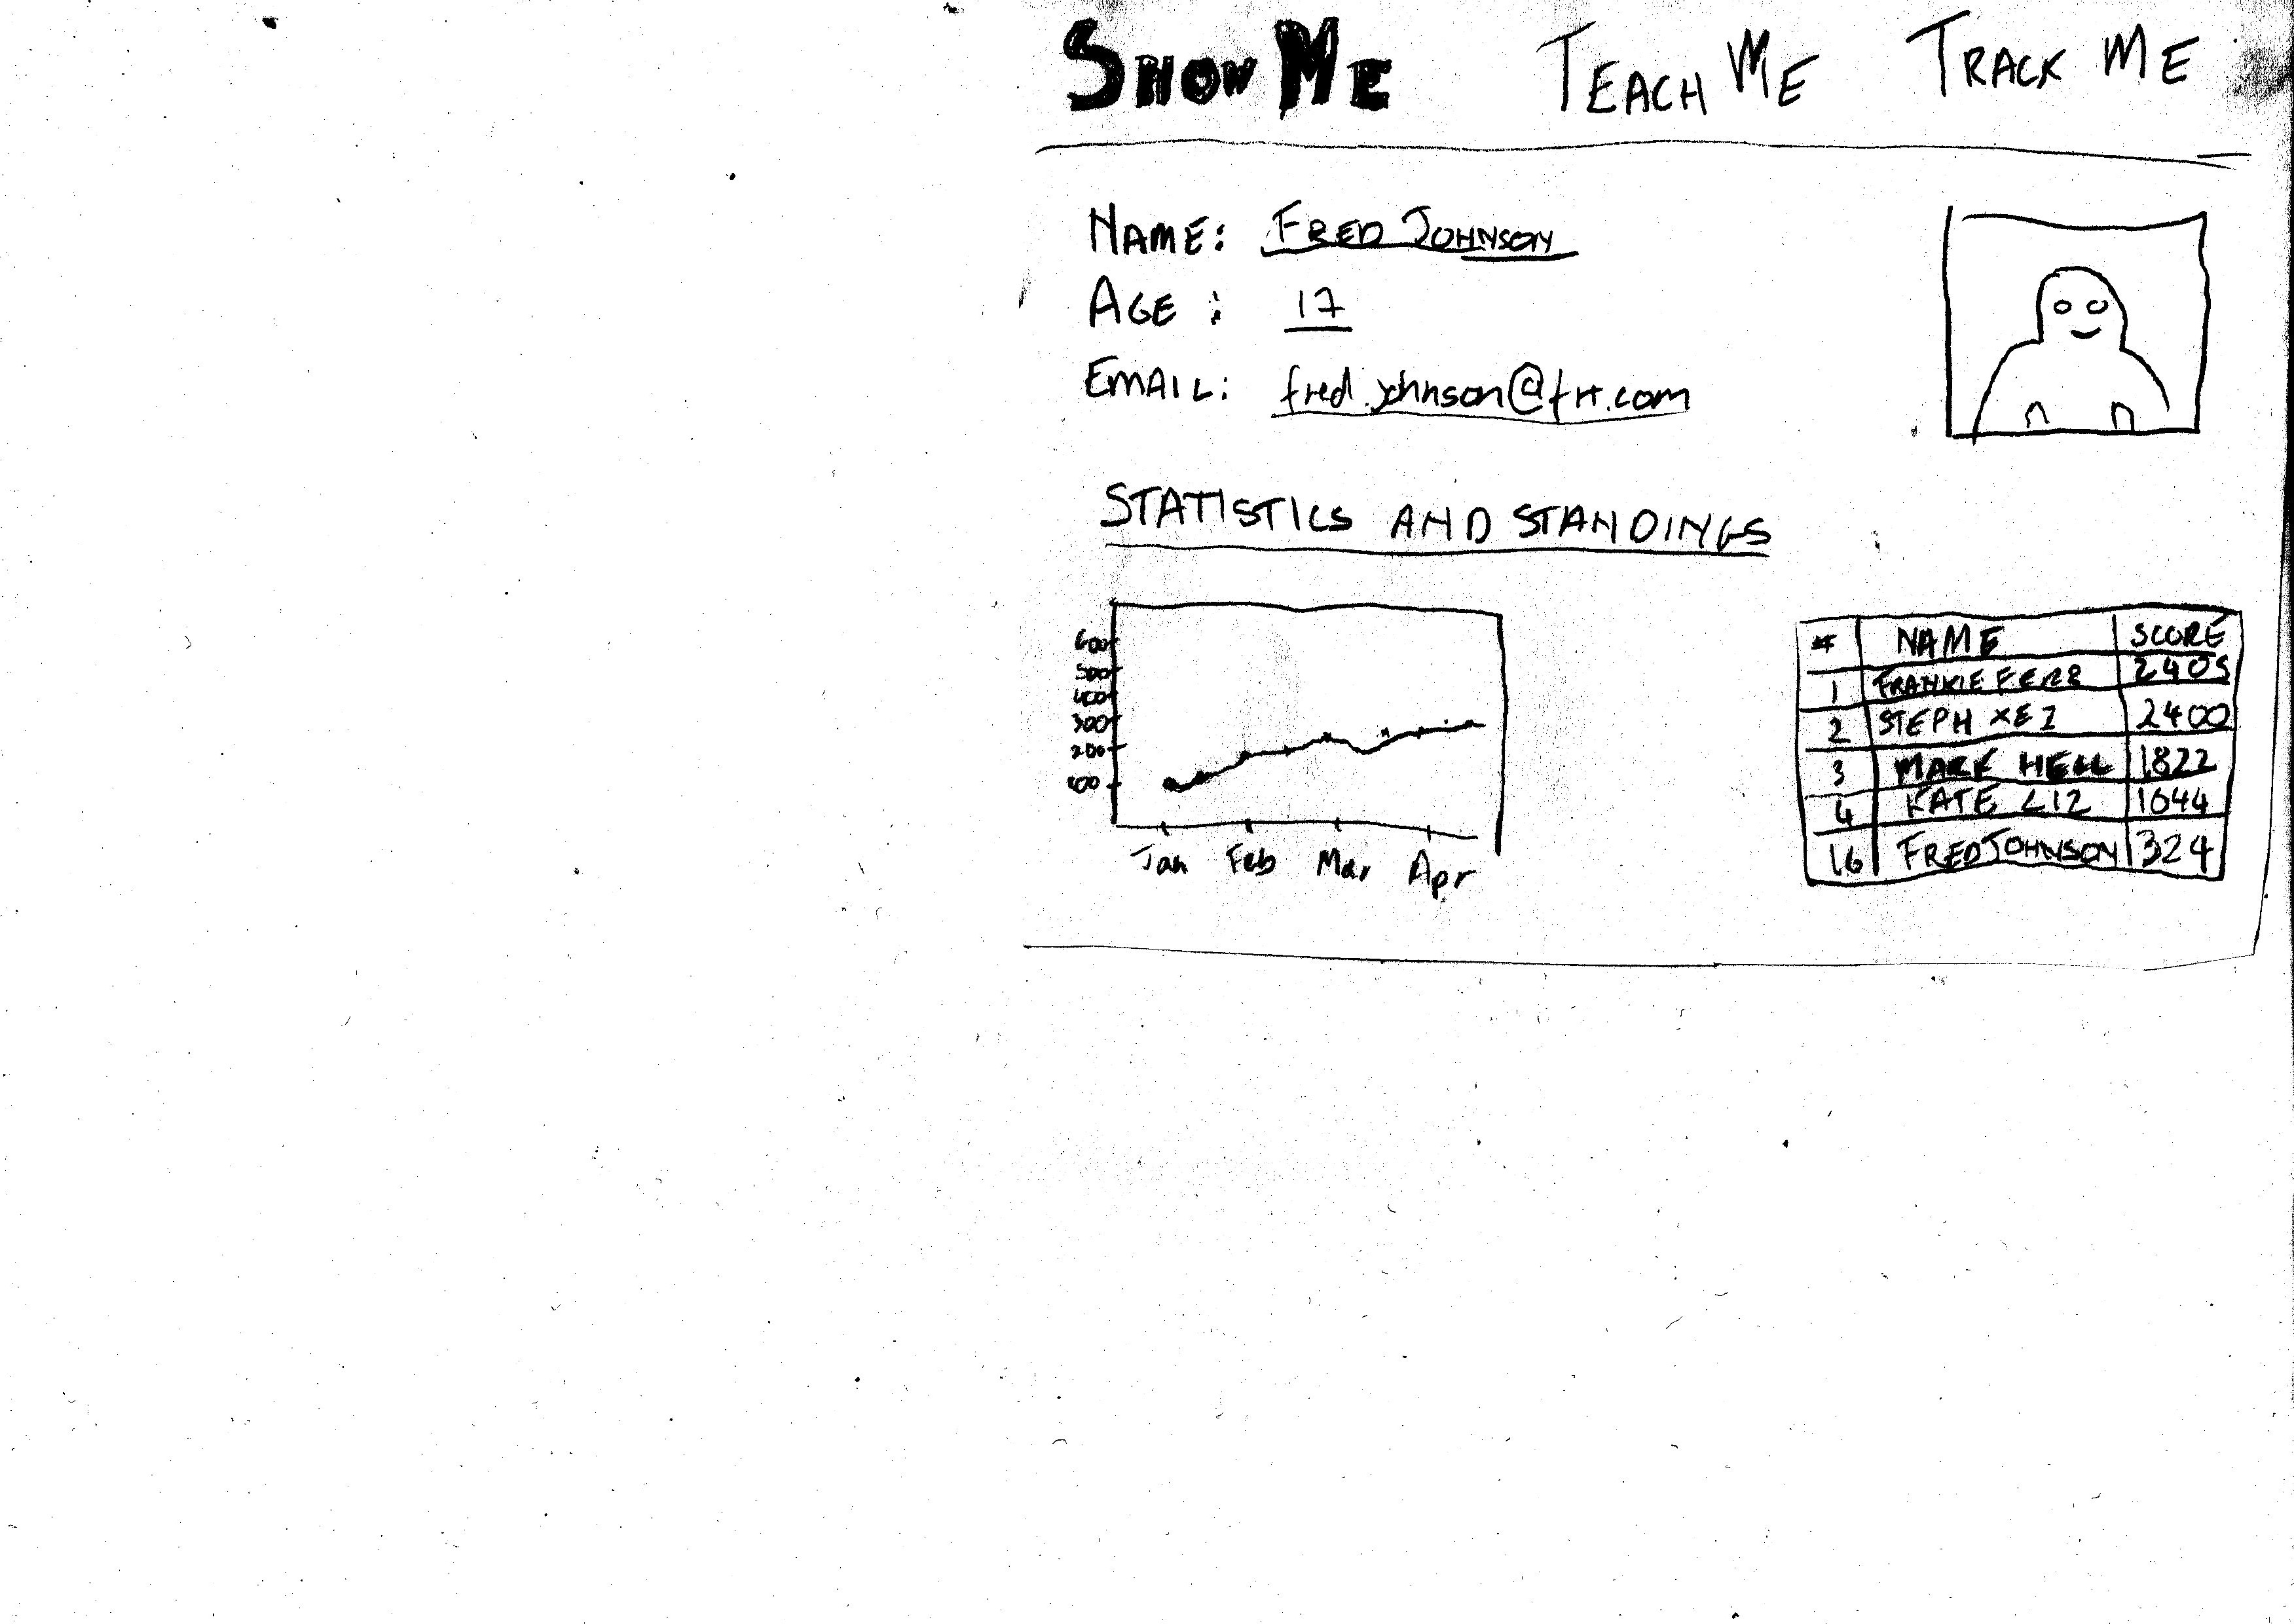 SHOW ME TEACH ME TRACK ME
NAME: FRED JOHNSON
AGE : 17
EMAIL: fred.johnson@frt.com
STATISTICS AND STANDINGS
600
500
400
300
200
100
Jan Feb Mar Apr
# NAME SCORE
1 FRANKIE 2405
2 STEPH XEI 2400
3 MARK HELL 1822
4 KATE LIZ 1644
16 FRED JOHNSON 324